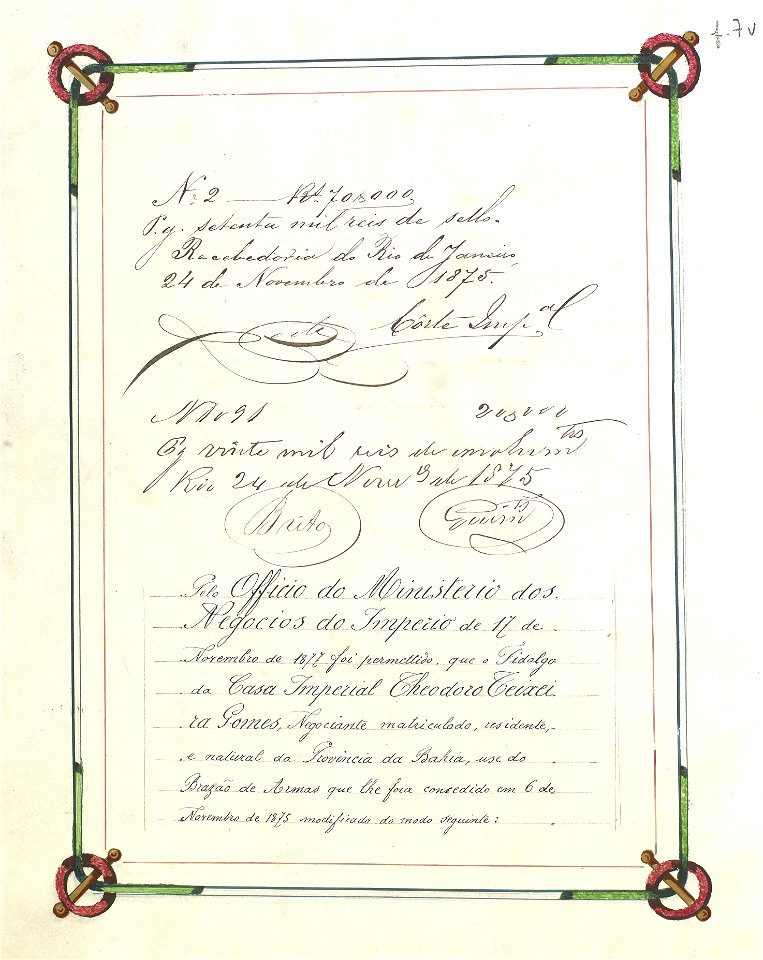 f. 7 v
Nº 2 — Rs. 70$000
Pg. setenta mil reis de sello.
Recebedoria do Rio de Janeiro
24 de Novembro de 1875.
Côrte Imp.al
N 1091 20$000
Pg vinte mil reis de emolum.tos
Rio 24 de Novem.º de 1875
Brito
Pelo Officio do Ministerio dos
Negocios do Imperio de 17 de
Novembro de 1877 foi permettido, que o Fidalgo
da Casa Imperial Theodoro Teixei
ra Gomes, Negociante matriculado, residente,
e natural da Provincia da Bahia, use do
Brazão de Armas que lhe fora concedido em 6 de
Novembro de 1875 modificado do modo seguinte: